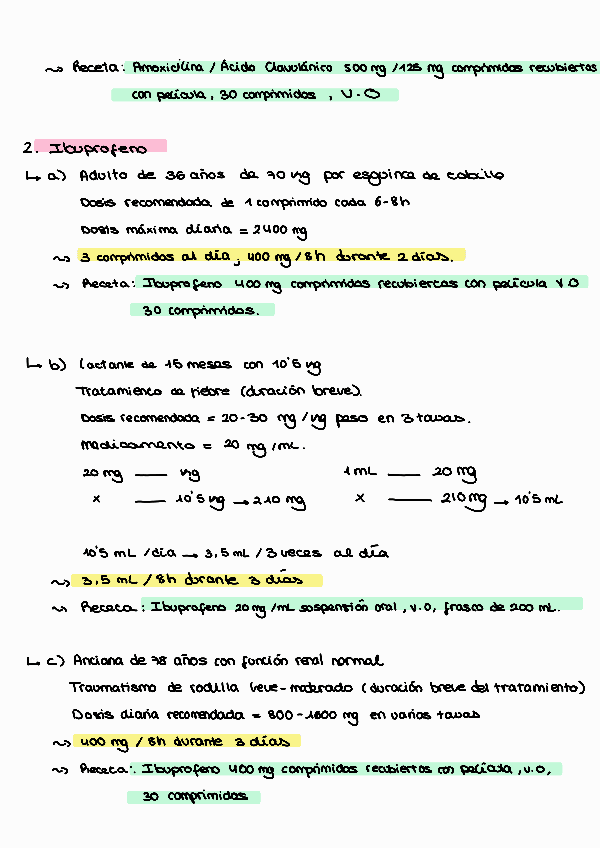 ~> Receta: Amoxicilina / Ácido Clavulánico 500 mg / 125 mg comprimidos recubiertos
con película, 30 comprimidos, V.O
2. Ibuprofeno
↳ a) Adulto de 36 años de 70 kg por esguince de tobillo
Dosis recomendada de 1 comprimido cada 6-8h
Dosis máxima diaria = 2400 mg
~> 3 comprimidos al día; 400 mg / 8h durante 2 días.
~> Receta: Ibuprofeno 400 mg comprimidos recubiertos con película V.O
30 comprimidos.
↳ b) Lactante de 15 meses con 10'5 kg
Tratamiento de fiebre (duración breve).
Dosis recomendada = 20-30 mg / kg peso en 3 tomas.
Medicamento = 20 mg / mL.
20 mg —— kg 1 mL —— 20 mg
x —— 10'5 kg → 210 mg x —— 210 mg → 10'5 mL
10'5 mL / día → 3,5 mL / 3 veces al día
~> 3,5 mL / 8h durante 3 días
~> Receta: Ibuprofeno 20 mg / mL suspensión oral, V.O, frasco de 200 mL.
↳ c) Anciana de 78 años con función renal normal
Traumatismo de rodilla leve-moderado (duración breve del tratamiento)
Dosis diaria recomendada = 800-1600 mg en varias tomas
~> 400 mg / 8h durante 3 días
~> Receta: Ibuprofeno 400 mg comprimidos recubiertos con película, V.O,
30 comprimidos